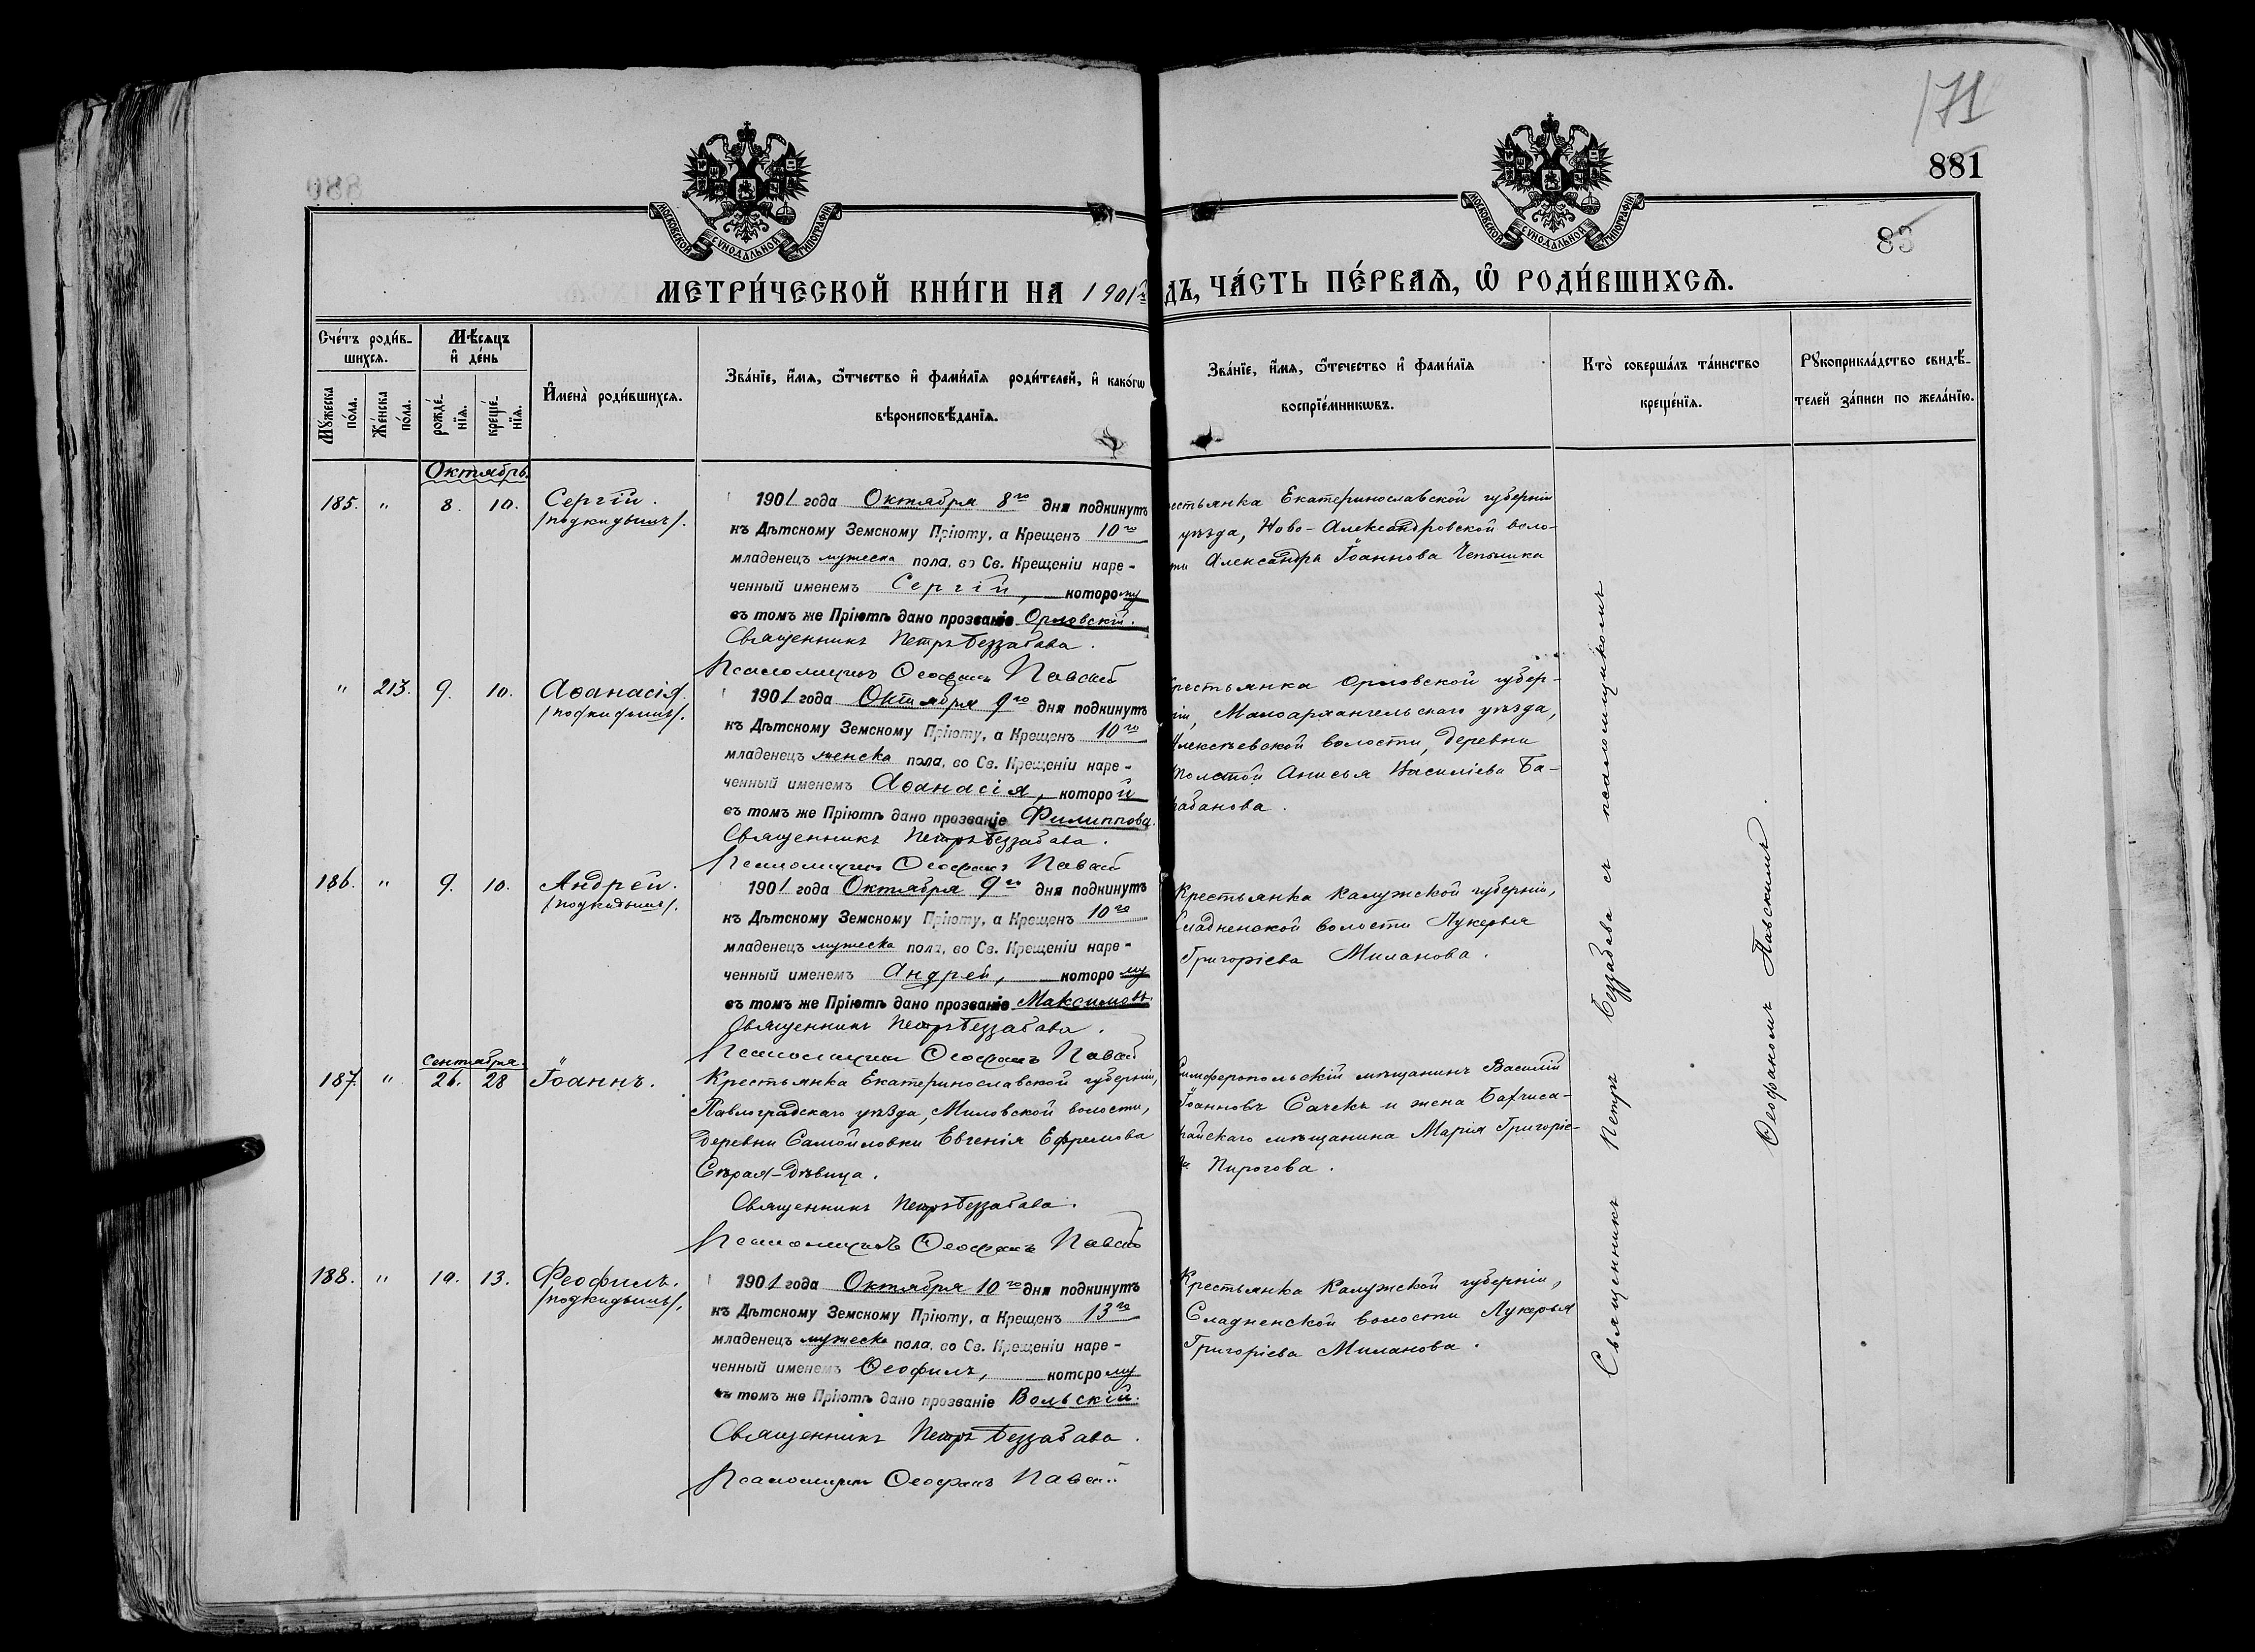 171
881
83
МОСКОВСКОЙ СУНОДАЛЬНОЙ ТИПОГРАФІИ
МОСКОВСКОЙ СУНОДАЛЬНОЙ ТИПОГРАФІИ
МЕТРИ́ЧЕСКОЙ КНИ́ГИ НА 1901 го
ДЪ, ЧА́СТЬ ПЕ́РВАѦ, Ѿ РОДИ́ВШИХСѦ.
Сче́тъ роди́в-
шихсѧ.
Мѣ́сѧцъ
и҆ де́нь
Мꙋжеска
по́ла.
Же́нска
по́ла.
рожде́-
нїѧ.
креще́-
нїѧ.
И҆мена̀ роди́вшихсѧ.
Зва́нїе, и҆́мѧ, ѻ҆́тчество и҆ фами́лїѧ роди́телей, и҆ како́гѡ
вѣроисповѣ́данїѧ.
Зва́нїе, и҆́мѧ, ѻ҆́течество и҆ фами́лїѧ
воспрїе́мникѡвъ.
Кто̀ соверша́лъ та́инство
креще́нїѧ.
Рꙋкоприкла́дство свидѣ́-
телей за́писи по жела́нїю.
Октябрь.
185. " 8. 10. Сергій.
/подкидышъ/.
1901 года Октября 8го дня подкинутъ
къ Дѣтскому Земскому Пріюту, а Крещенъ 10го
младенецъ мужеска пола, во Св. Крещеніи наре-
ченный именемъ Сергій, которому
въ томъ же Пріютѣ дано прозваніе Орловскій.
Священникъ Петръ Беззабава.
Псаломщикъ Ѳеофанъ Павскій
естьянка Екатеринославской губерніи
уѣзда, Ново-Александровской воло-
ти Александра Іоаннова Чепышка
" 213. 9. 10. Аѳанасія.
/подкидышъ/.
1901 года Октября 9го дня подкинутъ
къ Дѣтскому Земскому Пріюту, а Крещенъ 10го
младенецъ женска пола, во Св. Крещеніи наре-
ченный именемъ Аѳанасія, которой
въ томъ же Пріютѣ дано прозваніе Филиппова.
Священникъ Петръ Беззабава.
Псаломщикъ Ѳеофанъ Павскій
рестьянка Орловской губер-
ніи, Малоархангельскаго уѣзда,
Алексѣевской волости, деревни
Толстой Анисья Василіева Ба-
рабанова.
186. " 9. 10. Андрей.
/подкидышъ/.
1901 года Октября 9го дня подкинутъ
къ Дѣтскому Земскому Пріюту, а Крещенъ 10го
младенецъ мужеска пола, во Св. Крещеніи наре-
ченный именемъ Андрей, которому
въ томъ же Пріютѣ дано прозваніе Максимовъ.
Священникъ Петръ Беззабава.
Псаломщикъ Ѳеофанъ Павскій
Крестьянка Калужской губерніи,
Сладненской волости Лукерья
Григоріева Миланова.
Сентября.
187. " 26. 28 Іоаннъ.
Крестьянка Екатеринославской губерніи,
Павлоградскаго уѣзда, Миловской волости,
деревни Самойловки Евгенія Ефремова
Сѣрая-дѣвица.
Священникъ Петръ Беззабава.
Псаломщикъ Ѳеофанъ Павскій
Симферопольскій мѣщанинъ Василій
Іоанновъ Сачекъ и жена Бахчиса-
райскаго мѣщанина Марія Григоріе-
ва Пирогова.
188. " 10. 13. Феофилъ.
/подкидышъ/.
1901 года Октября 10го дня подкинутъ
къ Дѣтскому Земскому Пріюту, а Крещенъ 13го
младенецъ мужеска пола, во Св. Крещеніи наре-
ченный именемъ Ѳеофилъ, которому
въ томъ же Пріютѣ дано прозваніе Вольскій.
Священникъ Петръ Беззабава.
Псаломщикъ Ѳеофанъ Павскій
Крестьянка Калужской губерніи,
Сладненской волости Лукерья
Григоріева Миланова.
Священникъ Петръ Беззабава съ псаломщикомъ
Ѳеофаномъ Павскимъ.